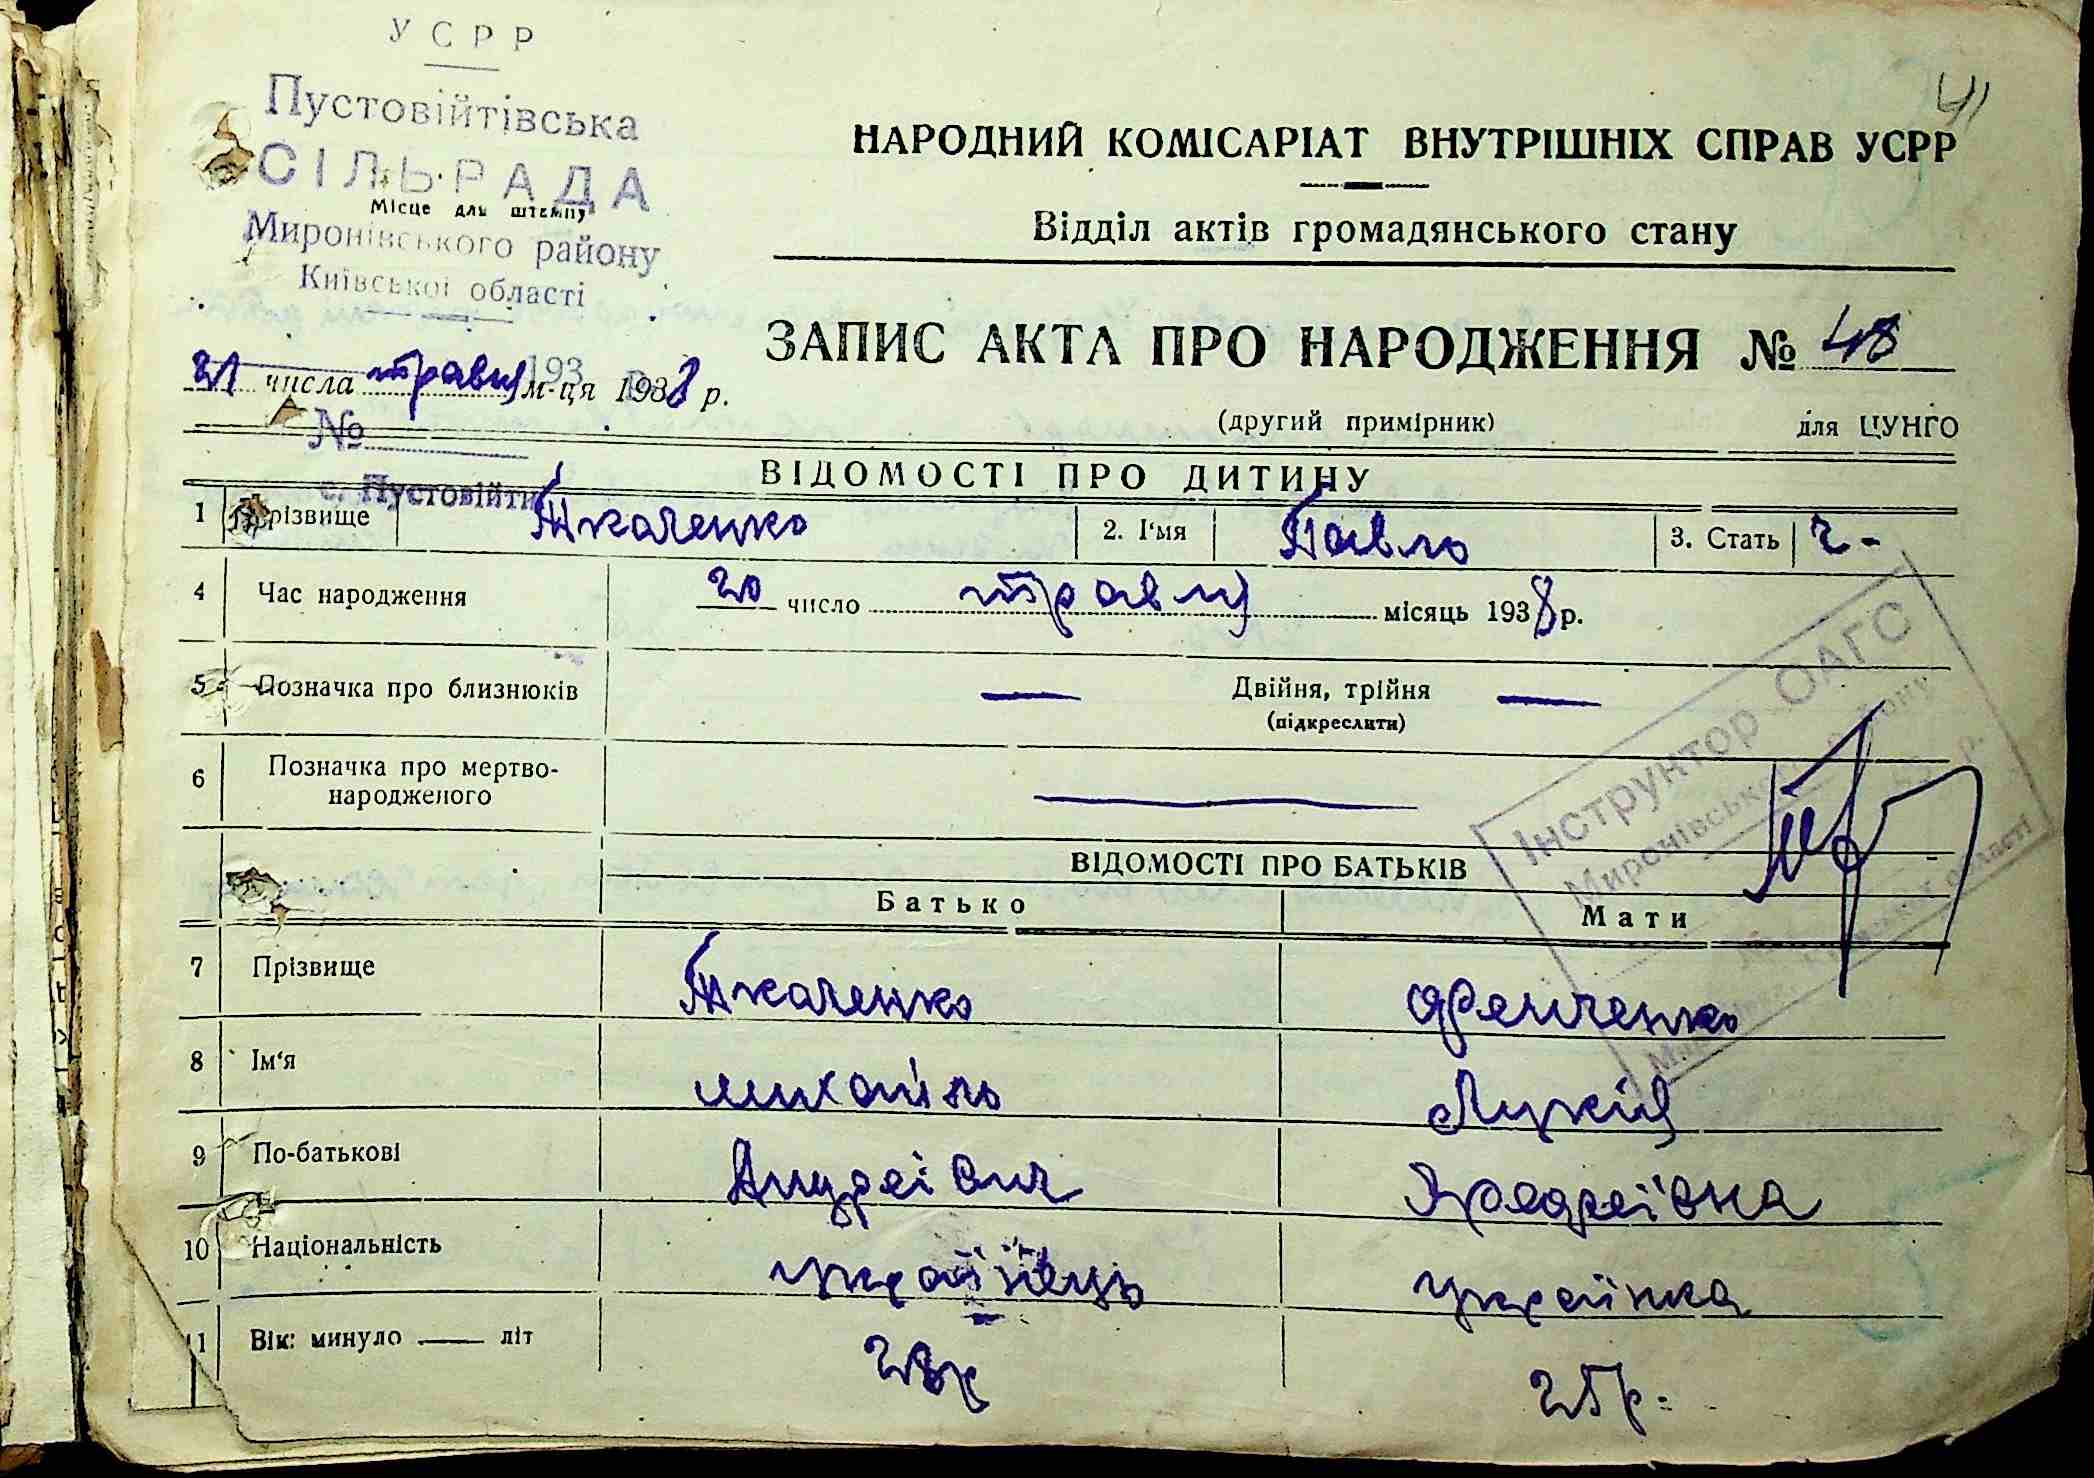 УСРР
Пустовійтівська
СІЛЬРАДА
Місце для штемпу
Миронівського району
Київської області
41
НАРОДНИЙ КОМІСАРІАТ ВНУТРІШНІХ СПРАВ УСРР
Відділ актів громадянського стану
ЗАПИС АКТА ПРО НАРОДЖЕННЯ № 48
193 р.
21 числа травня м-ця 1938 р.
(другий примірник) для ЦУНГО
№
с. Пустовійти
ВІДОМОСТІ ПРО ДИТИНУ
1 Прізвище Ткаченко 2. І'мя Павло 3. Стать ч-
4 Час народження 20 число травня місяць 1938 р.
5 Позначка про близнюків — Двійня, трійня —
(підкреслити)
6 Позначка про мертво-
народженого —
Інструктор ОАГС
Миронівського району
Київської області
ВІДОМОСТІ ПРО БАТЬКІВ
Батько Мати
7 Прізвище Ткаченко
8 Ім'я Михаіло Лукія
9 По-батькові Андреівич
10 Національність українець українка
11 Вік: минуло — літ 23р 25р.